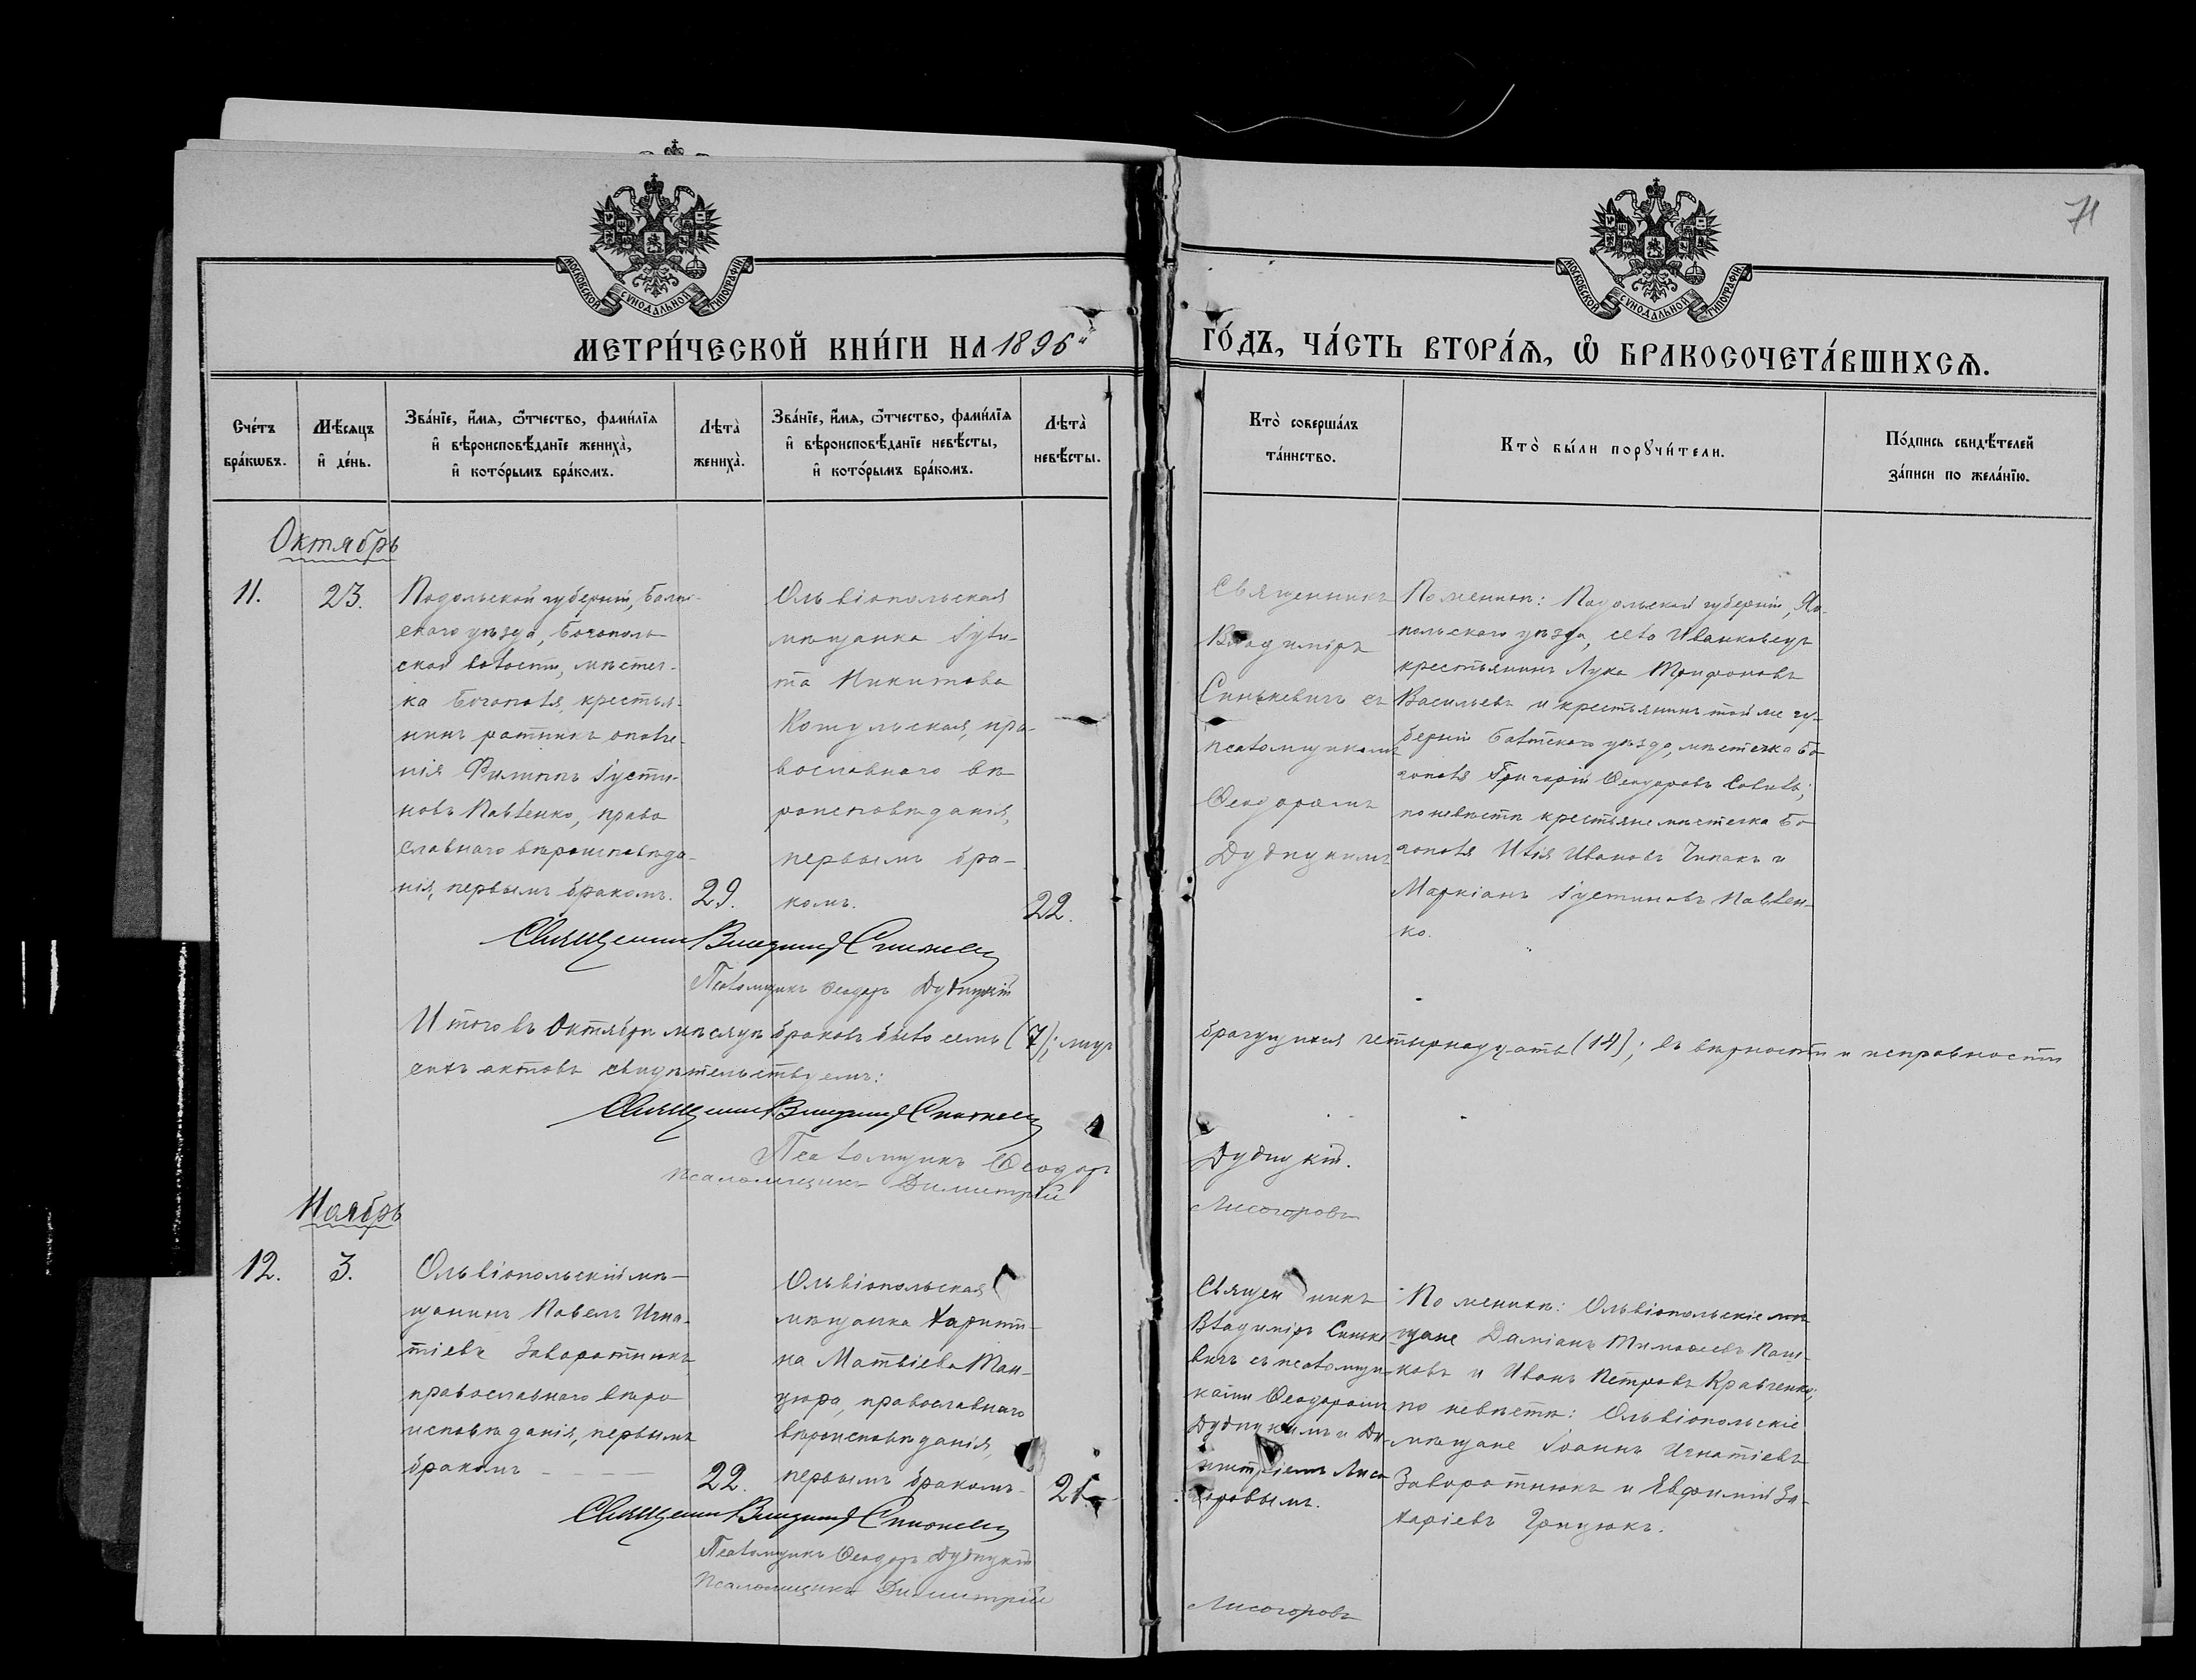 71
МОСКОВСКОЙ СѴНОДАЛЬНОЙ ТИПОГРАФІИ
МОСКОВСКОЙ СѴНОДАЛЬНОЙ ТИПОГРАФІИ
МЕТРИ́ЧЕСКОЙ КНИ́ГИ НА 1896
ГО́ДЪ, ЧА́СТЬ ВТОРА́Ѧ, Ѡ҆ БРАКОСОЧЕТА́ВШИХСѦ.
Сче́тъ
бра́кѡвъ.
Мѣ́сѧцъ
и҆ де́нь.
Зва́нїе, и҆́мѧ, ѻ҆́тчество, фами́лїѧ
и҆ вѣроисповѣ́данїе жениха̀,
и҆ кото́рымъ бра́комъ.
Лѣта̀
жениха̀.
Зва́нїе, и҆́мѧ, ѻ҆́тчество, фами́лїѧ
и҆ вѣроисповѣ́данїе невѣ́сты,
и҆ кото́рымъ бра́комъ.
Лѣта̀
невѣ́сты.
Кто̀ соверша́лъ
та́инство.
Кто̀ бы́ли порꙋчи́тели.
По́дпись свидѣ́телей
за́писи по жела́нїю.
Октябрь
11.
23.
Подольской губерніи, Балт-
скаго уѣзда, Богополь-
ской волости, мѣстеч-
ка Богополя, крестья-
нинъ ратникъ ополче-
нія Филиппъ Іусти-
новъ Павленко, право
славнаго вѣроисповѣда-
нія, первымъ бракомъ.
29.
Ольвіопольская
мѣщанка Іули-
та Никитова
Кошульская, пра-
вославнаго вѣ
роисповѣданія,
первымъ бра-
комъ.
22.
Священникъ
Владиміръ
Синькевичъ съ
псаломщикомъ
Ѳеодоромъ
Дудицкимъ
По женихѣ: Подольской губерніи, Ям-
польскаго уѣзда, село
крестьянинъ Лука Трифоновъ
Васильевъ и крестьянинъ той же гу-
берніи Балтскаго уѣзда, мѣстечка Бо-
гополя Григорій Ѳеодоровъ
по невѣстѣ крестьяне мѣстечка Бо-
гополя Илія Ивановъ Чипакъ и
Маркіанъ Іустиновъ Павлен-
ко.
Священникъ Владиміръ Синькевичъ
Псаломщикъ Ѳеодоръ Дудицкій
Итого въ Октябрѣ мѣсяцѣ браковъ было семь (7); лицъ
брачущихся четырнадцать (14); въ вѣрности и исправности
сихъ актовъ свидѣтельствуемъ:
Священникъ Владиміръ Синькевичъ
Псаломщикъ Ѳеодоръ
Дудицкій.
Псаломщикъ Димитрій
Лисогоровъ
Ноябрь
12.
3.
Ольвіопольскій мѣ-
щанинъ Павелъ Игна-
тіевъ Заворотнюкъ,
православнаго вѣро
исповѣданія, первымъ
бракомъ
22.
Ольвіопольская
мѣщанка Харити-
на Матвіева Ман-
зюра, православнаго
вѣроисповѣданія,
первымъ бракомъ
21.
Священникъ
Владиміръ Синьке
вичъ съ псаломщи-
ками Ѳеодоромъ
Дудицкимъ и Ди-
митріемъ Лисо-
горовымъ.
По женихѣ: Ольвіопольскіе мѣ
щане Даміанъ Тимоѳеевъ Паш-
ковъ и Иванъ Петровъ Кравченко;
по невѣстѣ: Ольвіопольскіе
мѣщане Іоаннъ Игнатіевъ
Заворотнюкъ и Евфимій За-
харіевъ Грицюкъ.
Священникъ Владиміръ Синькевичъ
Псаломщикъ Ѳеодоръ Дудицкій
Псаломщикъ Димитрій
Лисогоровъ